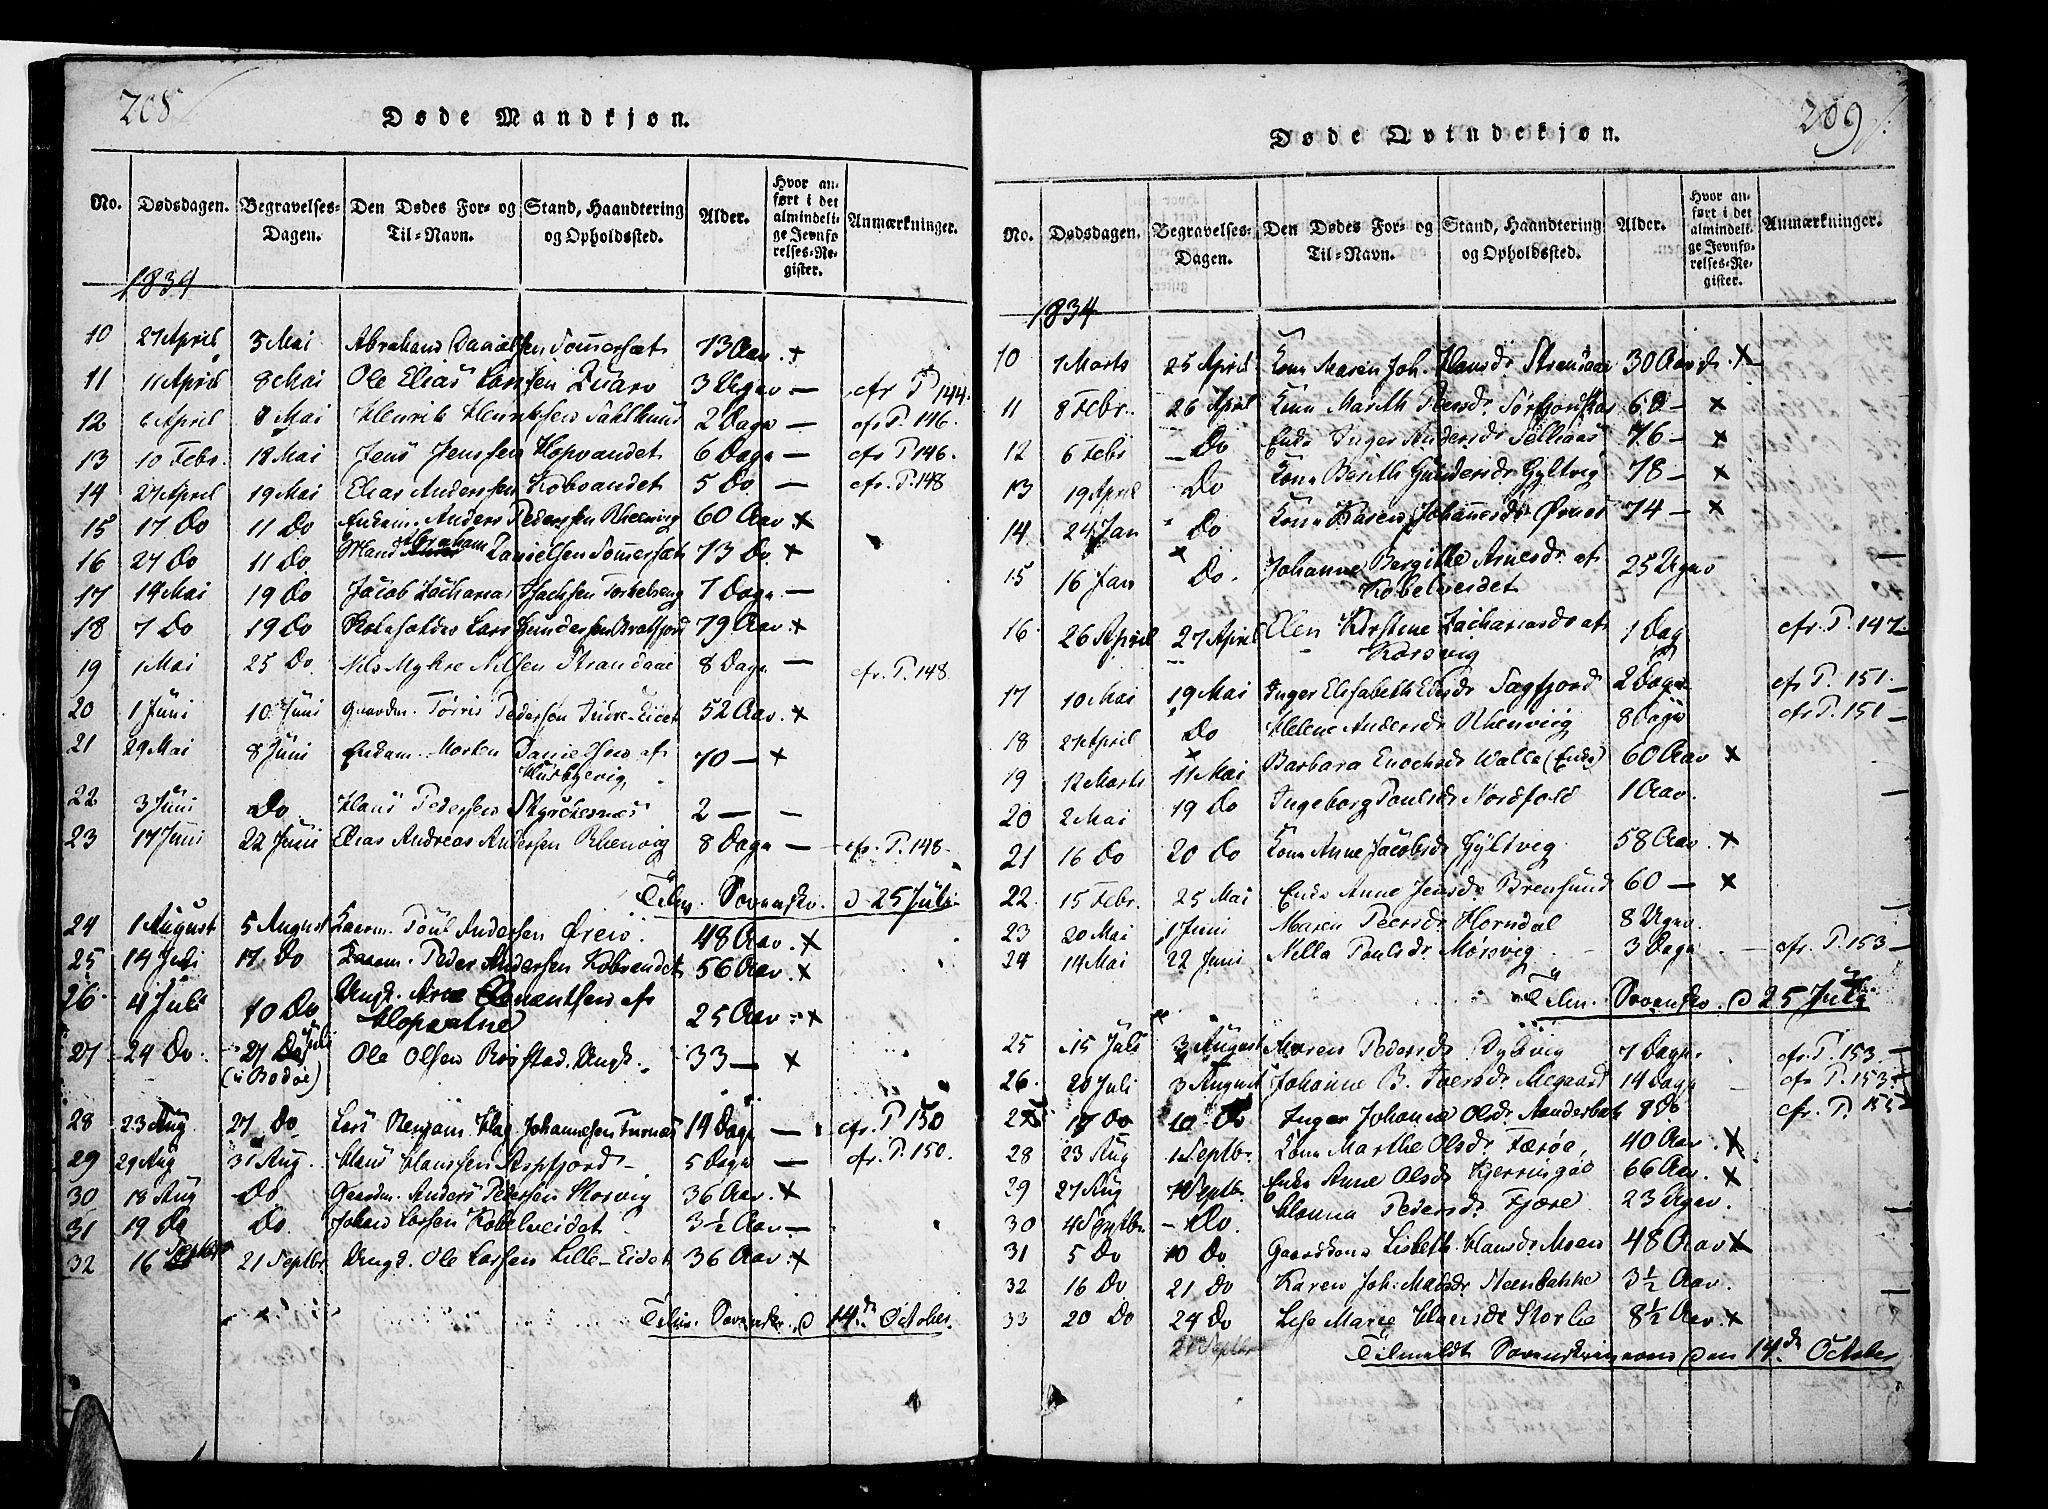 208
Døde Mandkjøn.
No. Dødsdagen. Begravelses-Dagen. Den Dødes For- og Til-Navn. Stand, Haandtering og Opholdssted. Alder. Hvor anført i det almindelige Jevnførelses-Register. Anmærkninger.
1834
10 27 April 3 Mai Abrahams Danielsen Sommerset 73 Aar. +
11 11 April 8 Mai Ole Elias Larssen 3 Uger — cfr P. 144.
12 6 April 8 Mai Henrik Henriksen 2 Dage — cfr P. 146.
13 10 Febr. 18 Mai Jens Jenssen Kopvandet 6 Dage — cfr P. 146.
14 27 April 19 Mai Elias Anderssen Kobvandet 5 Do — cfr. P. 148
15 17 Do 11 Do Enkem. Anders Pedersen Rhenvig 60 Aar. x
16 27 Do 11 Do Mand Abraham Danielsen Sommerset 73 Do. x
17 14 Mai 19 Do Jacob Zacharias 7 Dage —
18 7 Do 19 Do Lars Gundersen 79 Aar x
19 1 Mai 25 Do Nils Mykre Nilsen Strandaae 8 Dage — cfr. P. 148
20 1 Juni 10 Juni Gaardm. Tørris Pedersen Indre-Eidet 52 Aar. x
21 29 Mai 8 Juni Enkem. Morten Danielsen af Husbyevig 70 — x
22 3 Juni Do Hans Pedersen Styrkesnes 2 — —
23 17 Juni 22 Juni Elias Andreas Andersen Rhenvig 8 Dage — cfr. P. 148
Tilm. Sorenskr. d 25 Juli
24 1 August 5 August Poul Andersen 48 Aar. x
25 14 Juli 17 Do Peder Andersen Kobvandet 56 Aar. x
26 4 Juli 10 Do Ungk. Arne Clementsen af Kopvatne 25 Aar. x
27 24 Do. 27 Juli (i Bodøe) Ole Olsen Rognstad. Ungk. 33 — x
28 23 Aug 27 Do Lars Benjam. Johannesen Furnes 14 Dage — cfr. P. 150
29 29 Aug 31 Aug. Hans Hanssen Aspfjord 5 Dage — cfr. P. 150.
30 18 Aug Do Gaardm. Anders Pedersen Storvig 36 Aar. x
31 19 Do Do Johan Larsen Kobelveidet 3½ Aar. —
32 16 Septbr 21 Septbr. Ungk. Ole Larsen Lille-Eidet 36 Aar. x
Tilm. Sorenskr. d 14de October.
209
Døde Qvindekjøn.
No. Dødsdagen. Begravelses-Dagen. Den Dødes For- og Til-Navn. Stand, Haandtering og Opholdssted. Alder. Hvor anført i det almindelige Jevnførelses-Register. Anmærkninger.
1834
10 7 Marts 25 April Kone Maren Joh. Hansdr Strandaae 30 Aar x
11 8 Febr. 26 April Kone Marith Peersdr. 60 — x
12 6 Febr Do Enke Inger Andersdr 76 — x
13 19 April Do Kone Berith Gundersdr Gyltvig 78 — x
14 24 Jan Do Kone Karen Johannesdr Øvnes 74 — x
15 16 Jan Do. Johanne Bergitte Arnesdr. af Kobelveidet 25 Uger
16. 26 April 27 April Elen Kirstine Zachariasdr af Korsvig 1 Dag cfr. P. 147
17 10 Mai 19 Mai Inger Elisabeth Sagfjord 2 Dage cfr P. 151.
18 27 April Do Helene Andersdr Rhenviig 8 Dage cfr P. 151
19 12 Marts 11 Mai Barbara Enochsdr Walle (Enke) 60 Aar x
20 2 Mai 19 Do Ingeborg Poulsdr Nordfold 1 Aar.
21 16 Do 20 Do Kone Anne Jacobsdr Gyltvig 58 Aar. x
22. 15 Febr. 25 Mai Enke Anne Jensdr Brensund 60 — x
23 20 Mai 1 Juni Maren Peersdr Horndal 8 Uger.
24 14 Mai 22 Juni Nilla Poulsdr Mørsvig 3 Dage cfr. P. 153
Tilm. Sorenskr. d 25 Julii
25 15 Juli 3 August Maren Pedersdr Dybvig 7 Dage cfr. P. 153.
26. 20 Juli 3 August Johanne B. Iversdr. Megaard 14 Dage cfr P. 153
27 17 Do 10 Do Inger Johanne Olsdr. 8 Do cfr. P. 155
28 23 Aug 1 Septbr. Kone Marthe Olsdr. Færøe, 40 Aar. x
29 27 Aug 7 Septbr. Enke Anne Olsdr Kjerringøe 66 Aar. x
30 4 Septbr. Do. Hanna Pedersdr. Fjære 23 Uger.
31 5 Do 10 Do Gaardkone Lisbeth Hansdr Moen 48 Aar x
32 16 Do 21 Do Karen Joh. Madsdr 3½ Aar.
33 20 Do 24 Do Lise Marie 8½ Aar. x
21 Septbr
Tilmeldt Sorenskriveren den 14de October